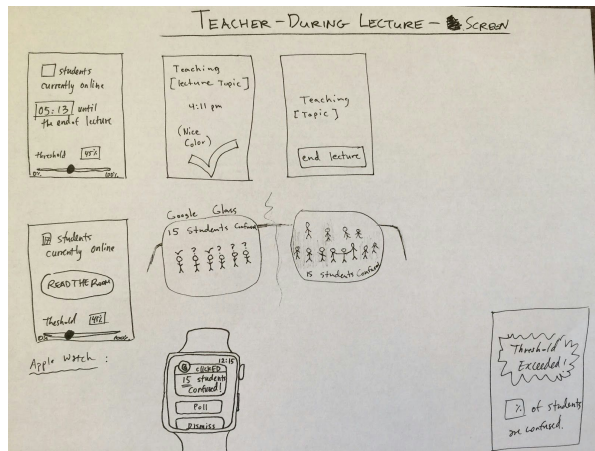 TEACHER - DURING LECTURE - SCREEN
students
currently online
05:13 until
the end of lecture
threshold 45%
0% 100%
Teaching
[lecture Topic]
4:11 pm
(Nice
Color)
Teaching
[Topic]
end lecture
students
currently online
READ THE ROOM
Theshold 45%
0% 100%
Google Glass
15 Students Confused
✓ ? ✓ ? ? ?
15 Students Confused
Apple Watch :
12:15
CLICKED
15 students
confused!
Poll
Dismiss
Threshold
Exceeded!
% of students
are confused.